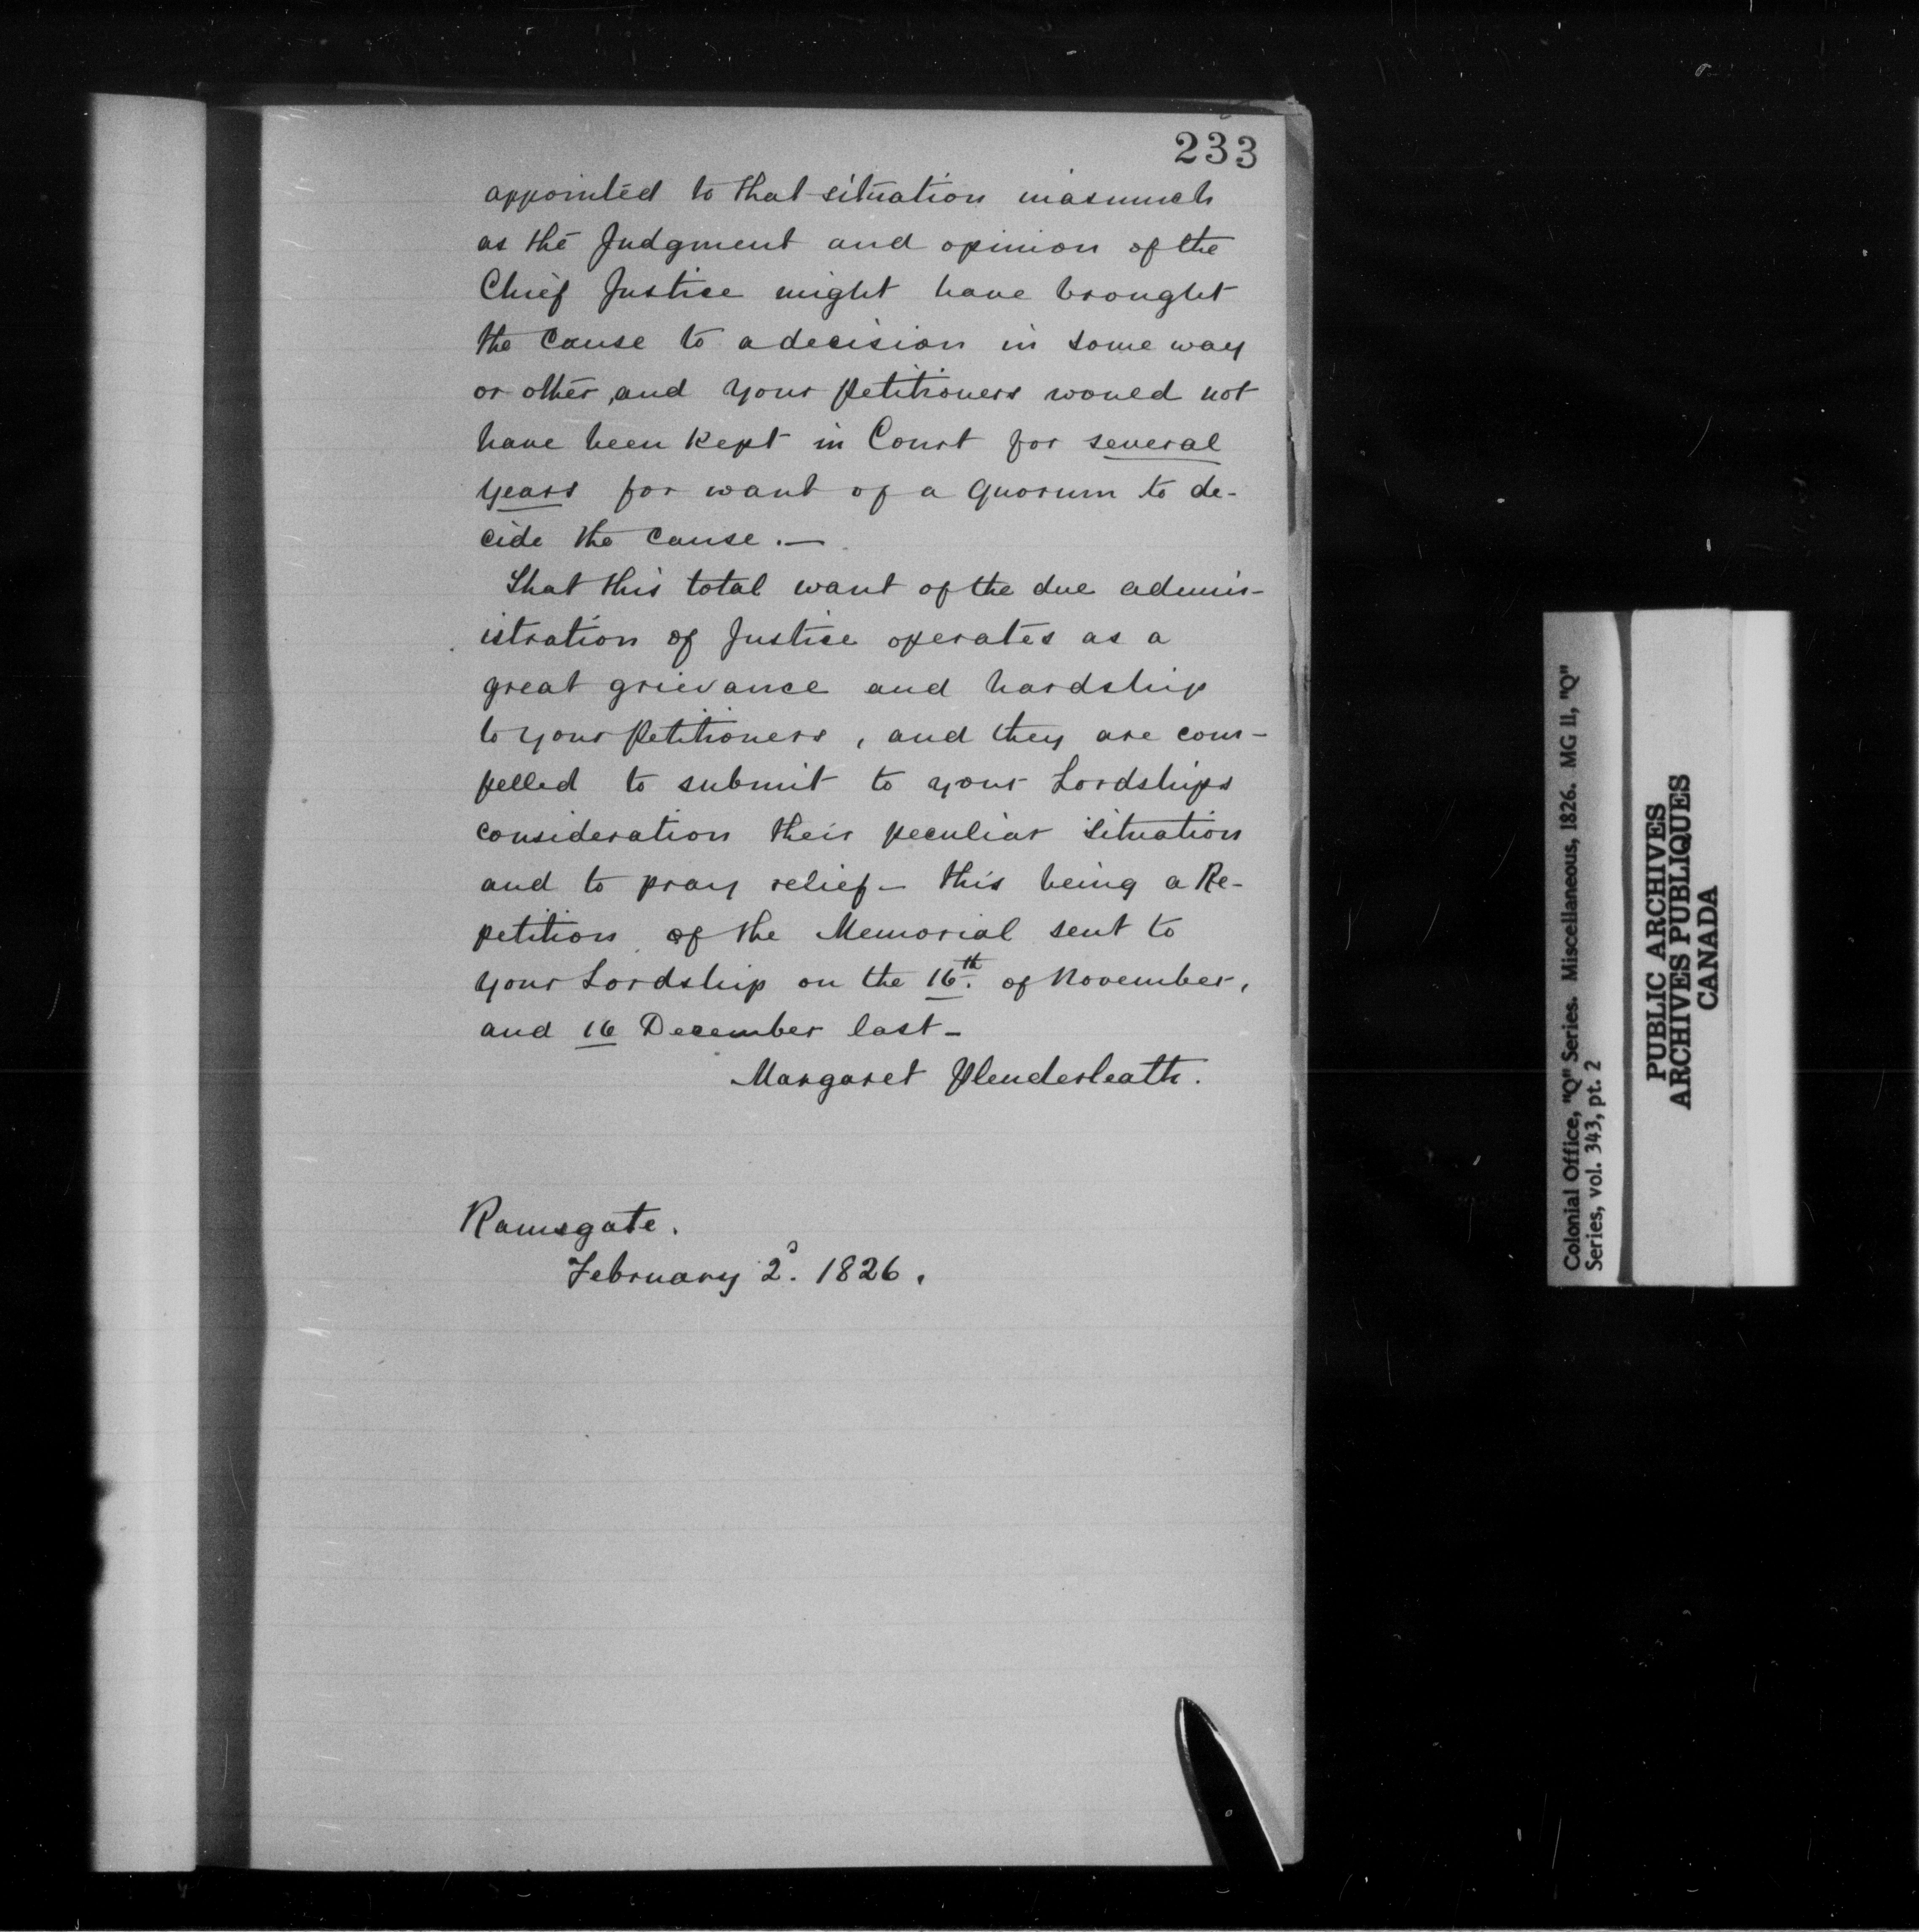 233
appointed to that situation inasmuch
as the Judgment and opinion of the
Chief Justice might have brought
the Cause to a decision in some way
or other, and your Petitioners would not
have been kept in Court for several
years for want of a Quorum to de-
cide the cause. —
That this total want of the due admin-
istration of Justice operates as a
great grievance and hardship
to your Petitioners, and they are com-
pelled to submit to your Lordships
consideration their peculiar situation
and to pray relief — this being a Re-
petition of the Memorial sent to
your Lordship on the 16th. of November,
and 16 December last —
Margaret Plenderleath.
Ramsgate.
February 2d. 1826.
Colonial Office, "Q" Series. Miscellaneous, 1826. MG 11, "Q"
Series, vol. 343, pt. 2
PUBLIC ARCHIVES
ARCHIVES PUBLIQUES
CANADA